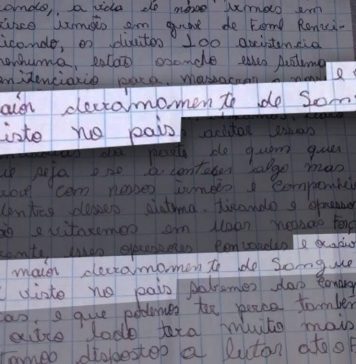 a vida de nosso irmãos em
risco irmãos em greve de Fome Renvi-
icando, os direitos 100 acistencia
nenhuma, estão osando esses sistema
enitenciario para, massacrar o e
maior derramamente de San
visto no pais aceitar essas
da parte de quem quer
e seja e se acontecer algo mas
com nossos irmãos e companhe
dentro desses sistema. tirando e opressor
ão evitaremos em usar nossas forç
esses opressores e
maior derramamente de Songue
visto no pais sabremos das conseq
as e que podemos ter perca também
outro lado tera muito mais
amos dispostos a lutar ate o f